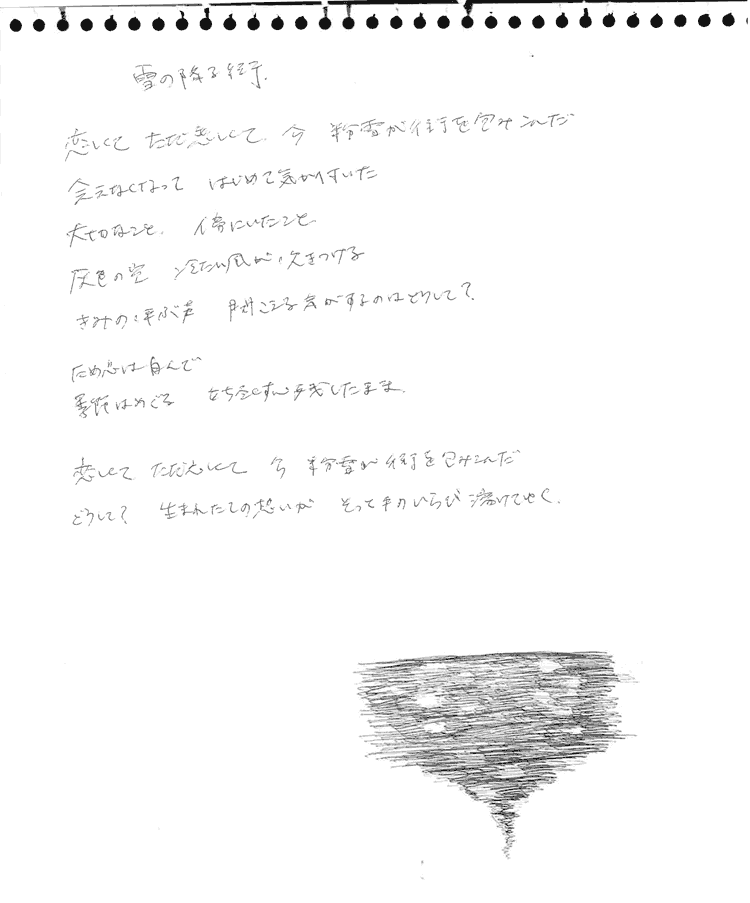 雪の降る街
恋しくて ただ恋しくて 今 粉雪が街を包みこんだ
会えなくなって はじめて気が付いた
大切なこと、傍にいたこと
灰色の空 冷たい風が吹きつける
きみの呼ぶ声 聞こえる気がするのはどうして?
ため息は白んで
季節はめぐる 立ち尽くす 残したまま
恋しくて ただ恋しくて 今 粉雪が街を包みこんだ
どうして? 生まれたての想いが そって手のひらび溶けてゆく.